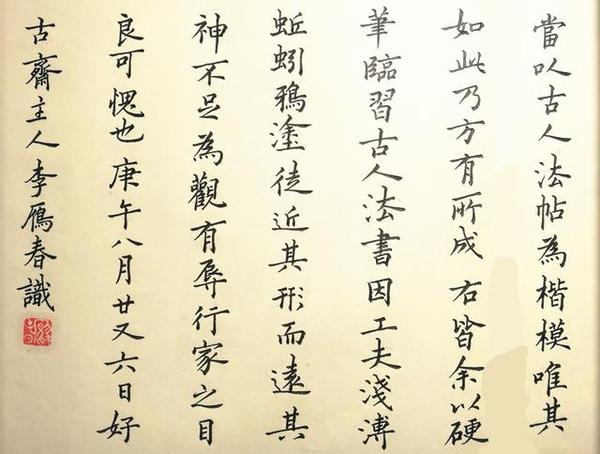 當以古人法帖為楷模唯其
如此乃方有所成右皆余以硬
筆臨習古人法書因工夫淺溥
蚯蚓鴉塗徒近其形而遠其
神不足為觀有辱行家之目
良可愧也庚午八月廿又六日好
古齋主人李鴈春識